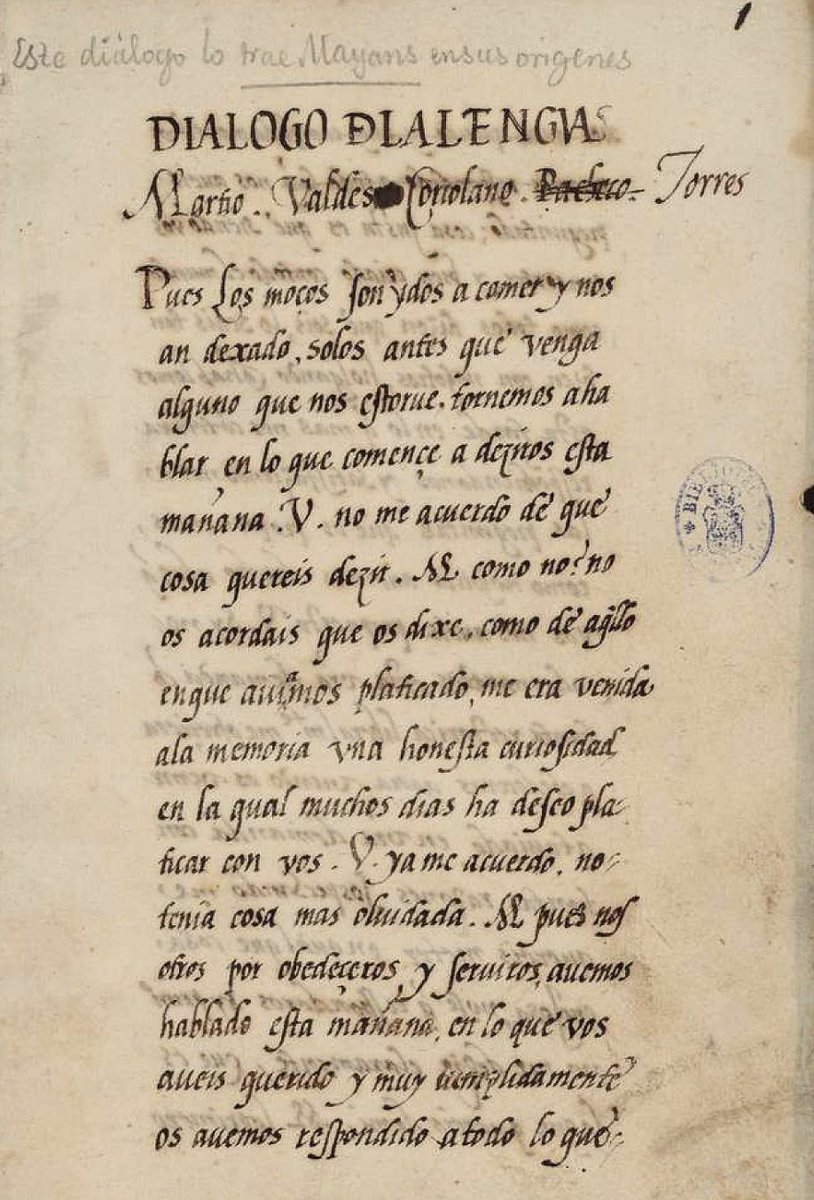 1
Este diálogo lo trae Mayans en sus origenes
DIALOGO DLALENGVA
Martio. Valdés Coriolano. Pacheco. Torres
Pues Los moços son ydos a comer y nos
an dexado, solos antes que venga
alguno que nos estorue. tornemos aha
blar en lo que començe a deziros esta
mañana. V. no me acuerdo de que
cosa quereis dezir. M como no? no
os acordais que os dixe, como de aq̃llo
enque auiamos platicado, me era venida
ala memoria vna honesta curiosidad
en la qual muchos dias ha deseo pla-
ticar con vos. V. ya me acuerdo. no-
tenia cosa mas oluidada. M pues nos
otros por obedeçeros, y seruiros, auemos
hablado esta mañana, en lo que vos
aueis querido y muy cumplidamente
os auemos respondido atodo lo que-
BIBLIOTECA